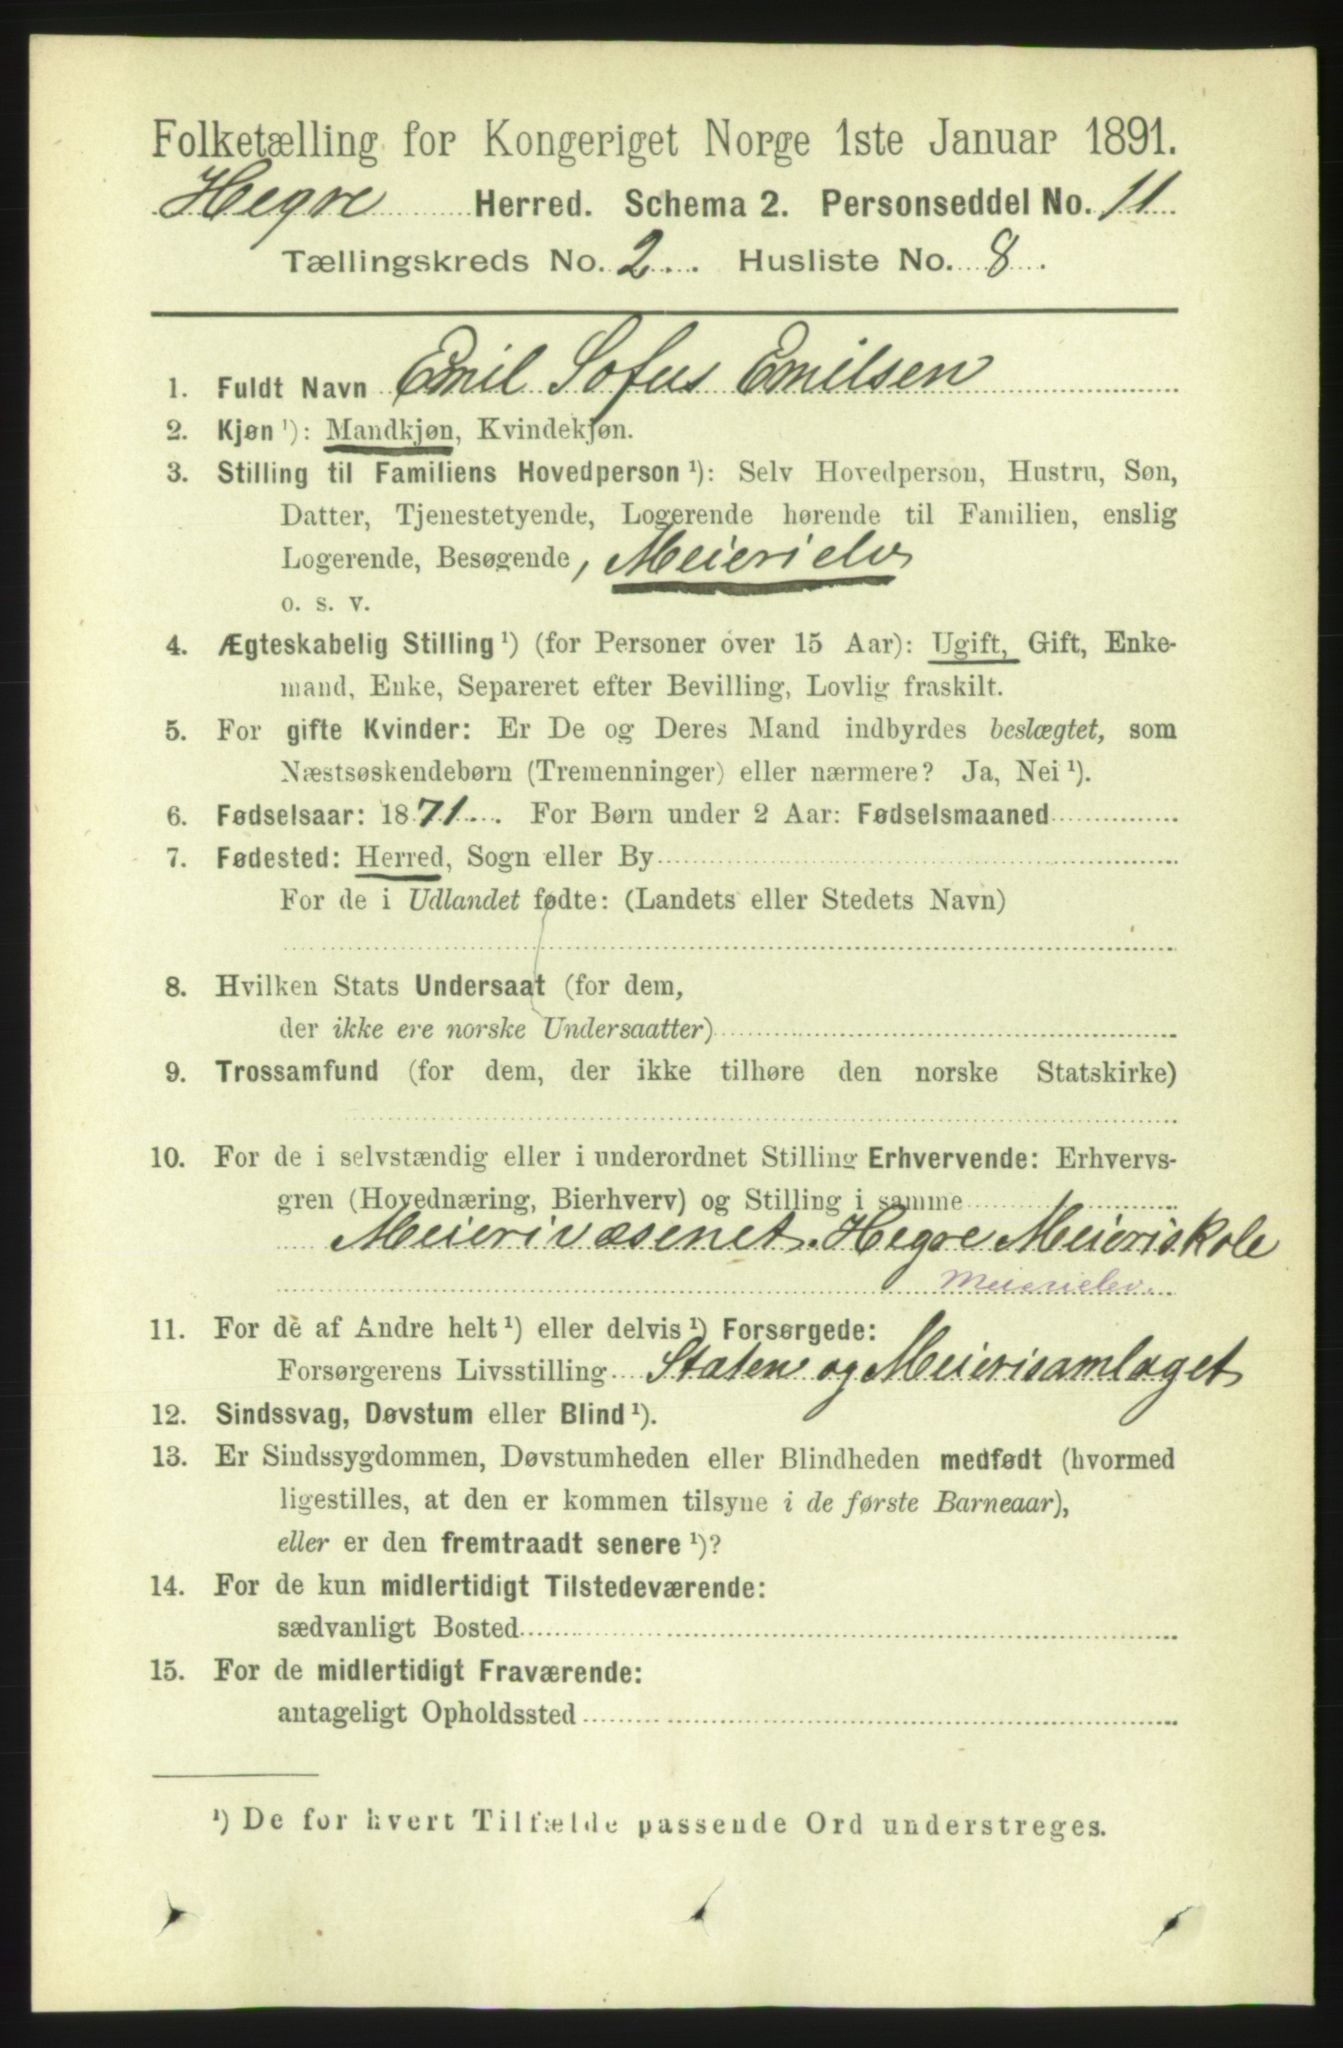 Folketælling for Kongeriget Norge 1ste Januar 1891.
Hegre Herred. Schema 2. Personseddel No. 11
Tællingskreds No. 2. Husliste No. 8.
1. Fuldt Navn Emil Sofus Emilsen
2. Kjøn ¹): Mandkjøn, Kvindekjøn.
3. Stilling til Familiens Hovedperson ¹): Selv Hovedperson, Hustru, Søn,
Datter, Tjenestetyende, Logerende hørende til Familien, enslig
Logerende, Besøgende, Meierielev
o. s. v.
4. Ægteskabelig Stilling ¹) (for Personer over 15 Aar): Ugift, Gift, Enke-
mand, Enke, Separeret efter Bevilling, Lovlig fraskilt.
5. For gifte Kvinder: Er De og Deres Mand indbyrdes beslægtet, som
Næstsøskendebørn (Tremenninger) eller nærmere? Ja, Nei ¹).
6. Fødselsaar: 1871. For Børn under 2 Aar: Fødselsmaaned
7. Fødested: Herred, Sogn eller By
For de i Udlandet fødte: (Landets eller Stedets Navn)
8. Hvilken Stats Undersaat (for dem,
der ikke ere norske Undersaatter)
9. Trossamfund (for dem, der ikke tilhøre den norske Statskirke)
10. For de i selvstændig eller i underordnet Stilling Erhvervende: Erhvervs-
gren (Hovednæring, Bierhverv) og Stilling i samme
Meierivæsenet. Hegre Meieriskole
Meierielev.
11. For de af Andre helt ¹) eller delvis ¹) Forsørgede:
Forsørgerens Livsstilling Staten og Meierisamlaget
12. Sindssvag, Døvstum eller Blind ¹).
13. Er Sindssygdommen, Døvstumheden eller Blindheden medfødt (hvormed
ligestilles, at den er kommen tilsyne i de første Barneaar),
eller er den fremtraadt senere ¹)?
14. For de kun midlertidigt Tilstedeværende:
sædvanligt Bosted
15. For de midlertidigt Fraværende:
antageligt Opholdssted
¹) De for hvert Tilfælde passende Ord understreges.